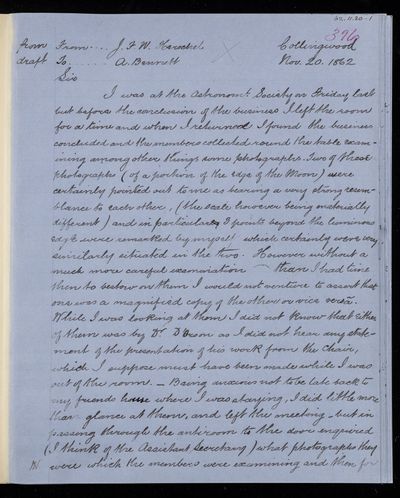 62.11.20-1
396
from From.... J. F. W. Herschel Collingwood
draft To....... A. Bennett Nov. 20. 1862
Sir
I was at the Astronoml. Society on Friday last
but before the conclusion of the business I left the room
for a time and when I returned I found the business
concluded and the members collected round the table exam-
ining among other things some photographs. Two of these
photographs (of a portion of the edge of the Moon) were
certainly pointed out to me as bearing a very strong resem-
blance to each other, (the scale however being materially
different) and in particular 3 points beyond the luminous
edge were remarked by myself which certainly were very
similarly situated in the two. However without a
much more careful examination than I had time
then to bestow on them I would not venture to assert that
one was a magnified copy of the other or vice versâ.
While I was looking at them I did not know that either
of them was by Dr. D'Orsan as I did not hear any state-
ment of the presentation of his work from the Chair,
which I suppose must have been made while I was
out of the room. — Being anxious not to be late back to
my friends house where I was staying, I did little more
than glance at them, and left the meeting - but in
passing through the anteroom to the door enquired
(I think of the Assistant Secretary) what photographs they
were which the members were examining and then for